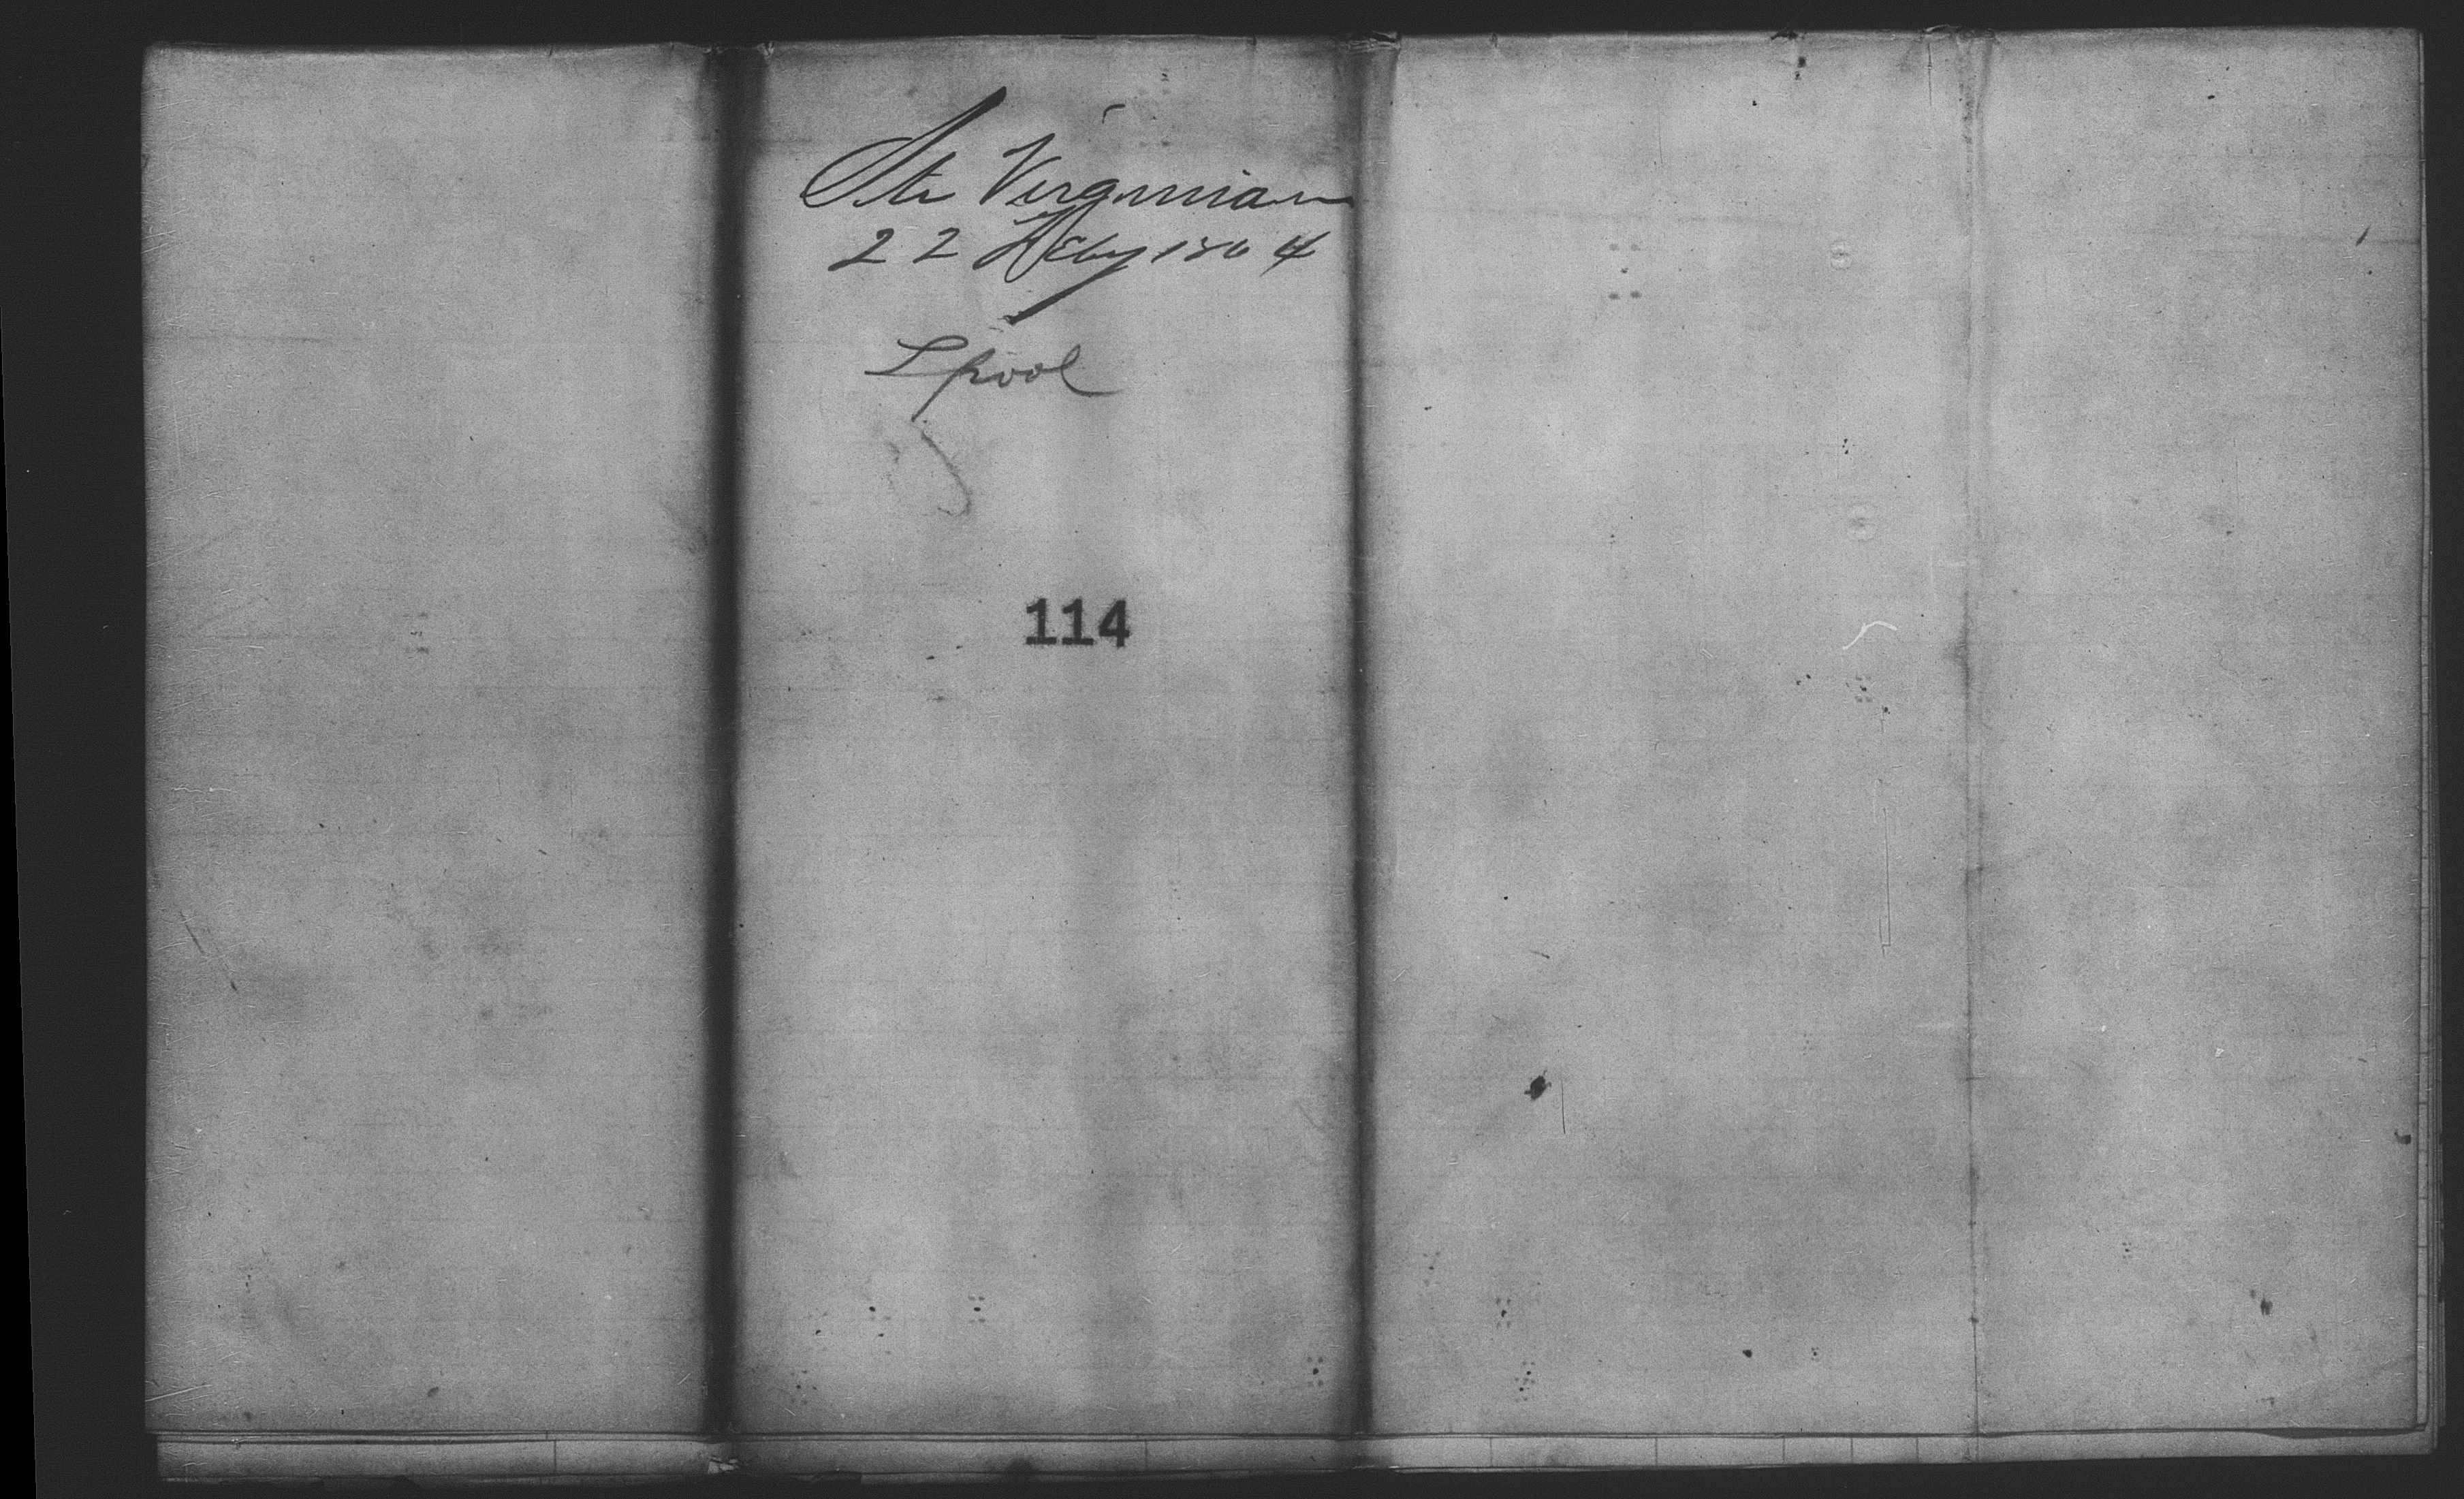 Str Virginian
22 Feby 1864
Lpool
114